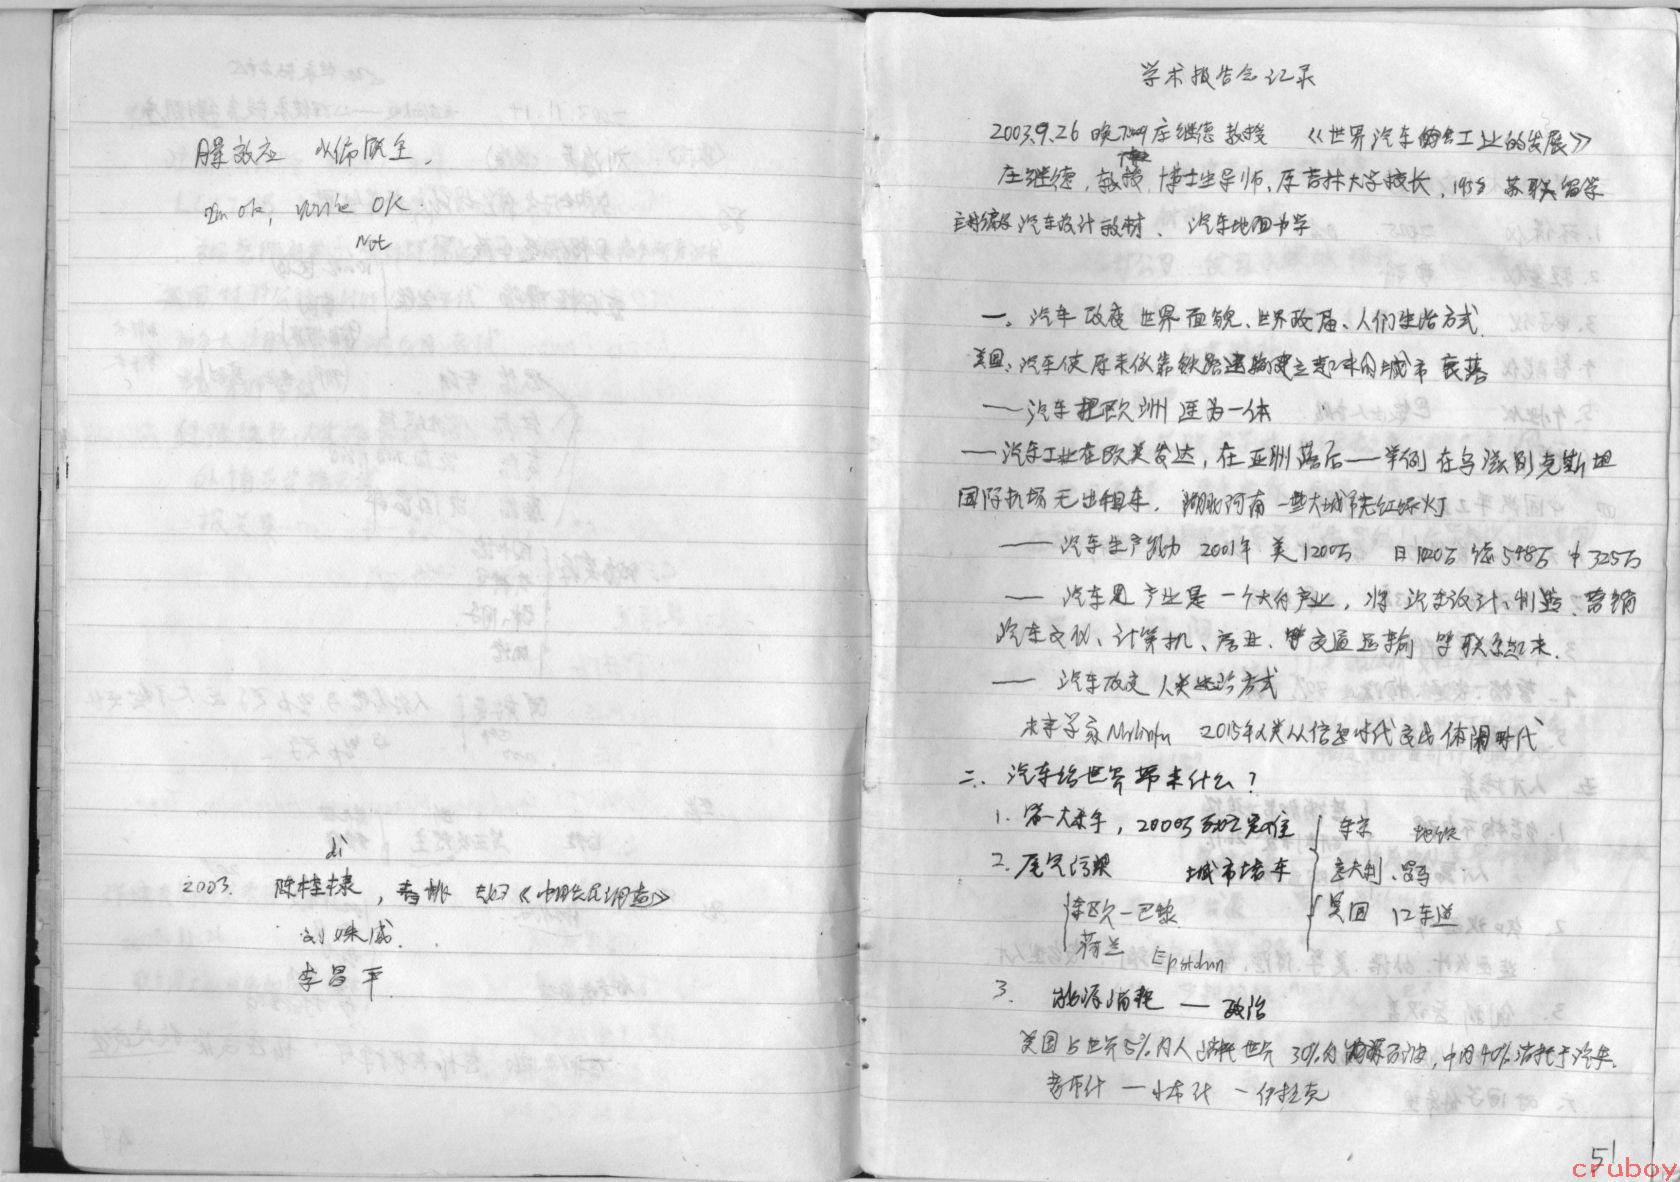 效应
I'm ok, write OK.
Not
di
2003. 陈桂棣, 春桃 夫妇《中国农民调查》
刘姝威.
李昌平
学术报告会记录
2003.9.26 晚 庄继德 教授 《世界汽车工业的发展》
庄继德, 教授, 博士生导师, 原吉林大学校长, 苏联留学
主编 汽车设计教材、汽车地面力学
一。汽车改变世界面貌、世界政局、人们生活方式
美国: 汽车使原来依靠铁路运输建立起来的城市衰落
——汽车把欧洲连为一体
——汽车工业在欧美发达, 在亚洲落后——举例 在乌兹别克斯坦
国际机场无出租车. 湖北河南一些大城市无红绿灯
—— 汽车生产能力 2001年 美1200万 日1020万 德548万 中325万
—— 汽车产业是一个大的产业, 将汽车设计、制造、营销
汽车文化、计算机、 交通运输 等联系起来.
—— 汽车改变人类生活方式
未来学家 2015年人类从信息时代变为休闲时代
二、汽车给世界带来什么?
1. 第一大杀手,
东京 地铁
2. 尾气污染 城市堵车
意大利. 罗马
美国 12车道
西欧—巴黎
荷兰
3. 能源消耗 — 政治
美国占世界5%的人消耗世界30%的石油, 中的40%消耗于汽车.
老布什 — 小布什 — 伊拉克
51
cruboy